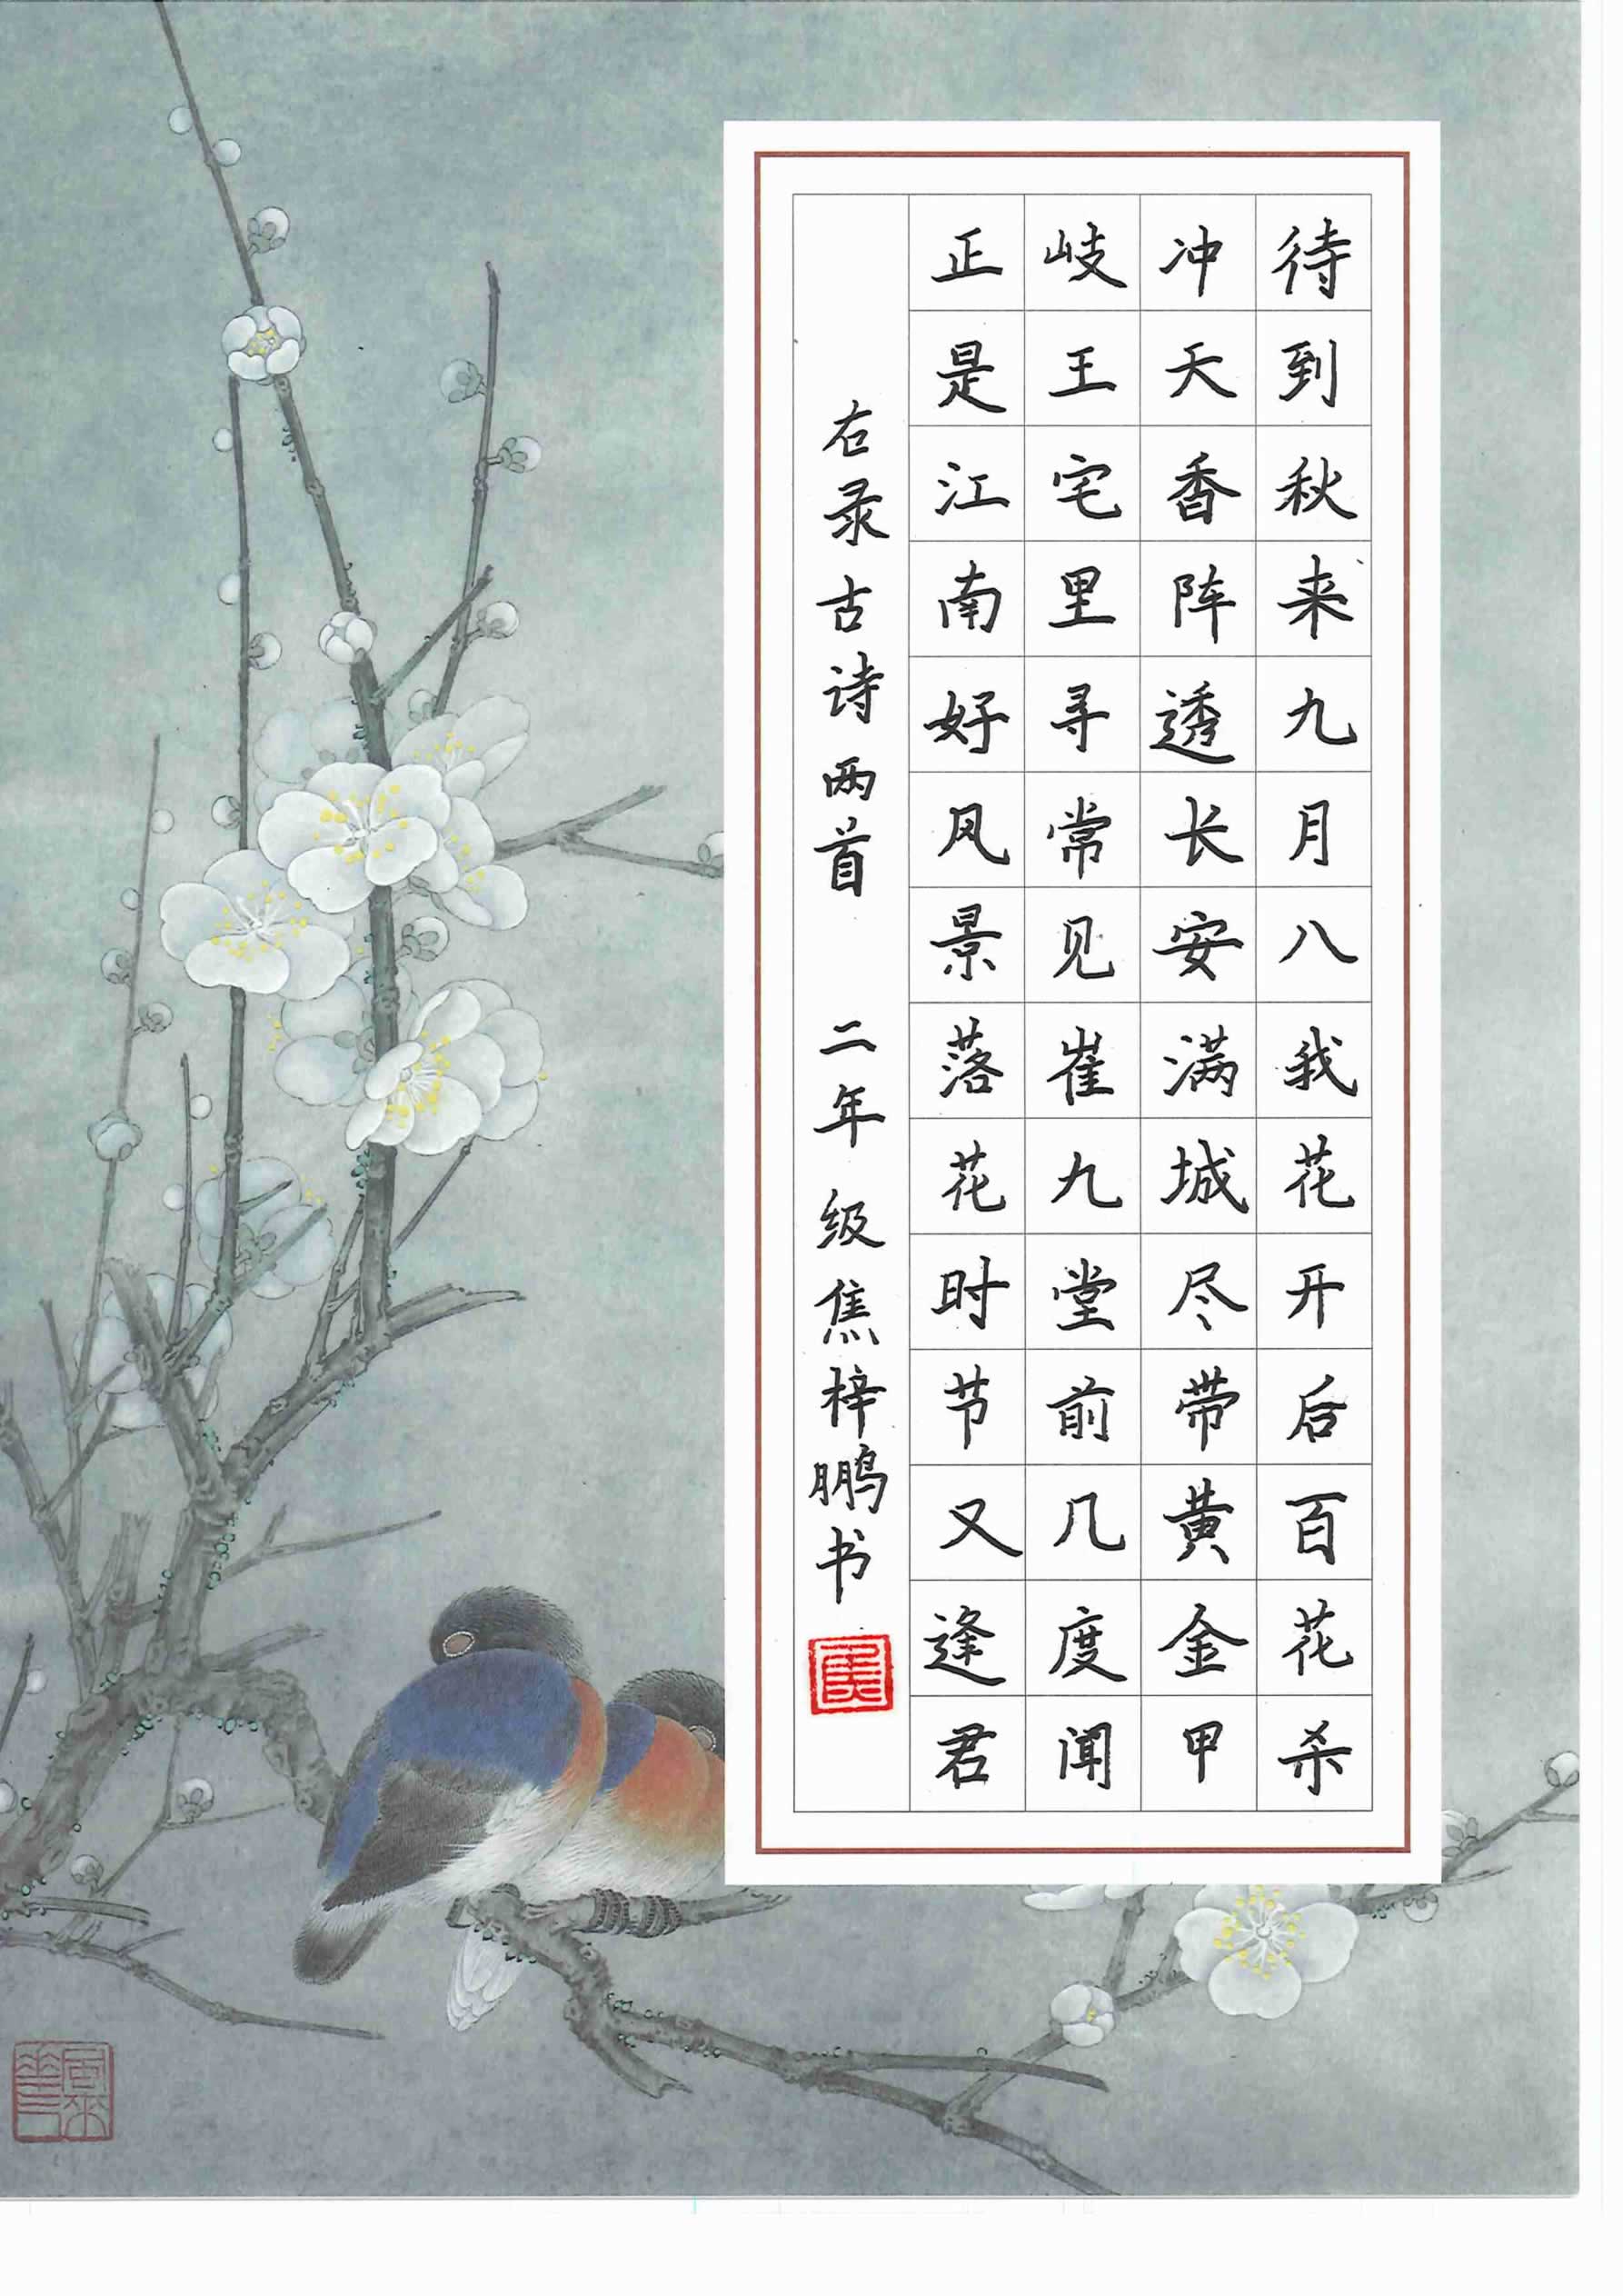 待到秋来九月八我花开后百花杀
冲天香阵透长安满城尽带黄金甲
岐王宅里寻常见崔九堂前几度闻
正是江南好风景落花时节又逢君
右录古诗两首 二年级焦梓鹏书